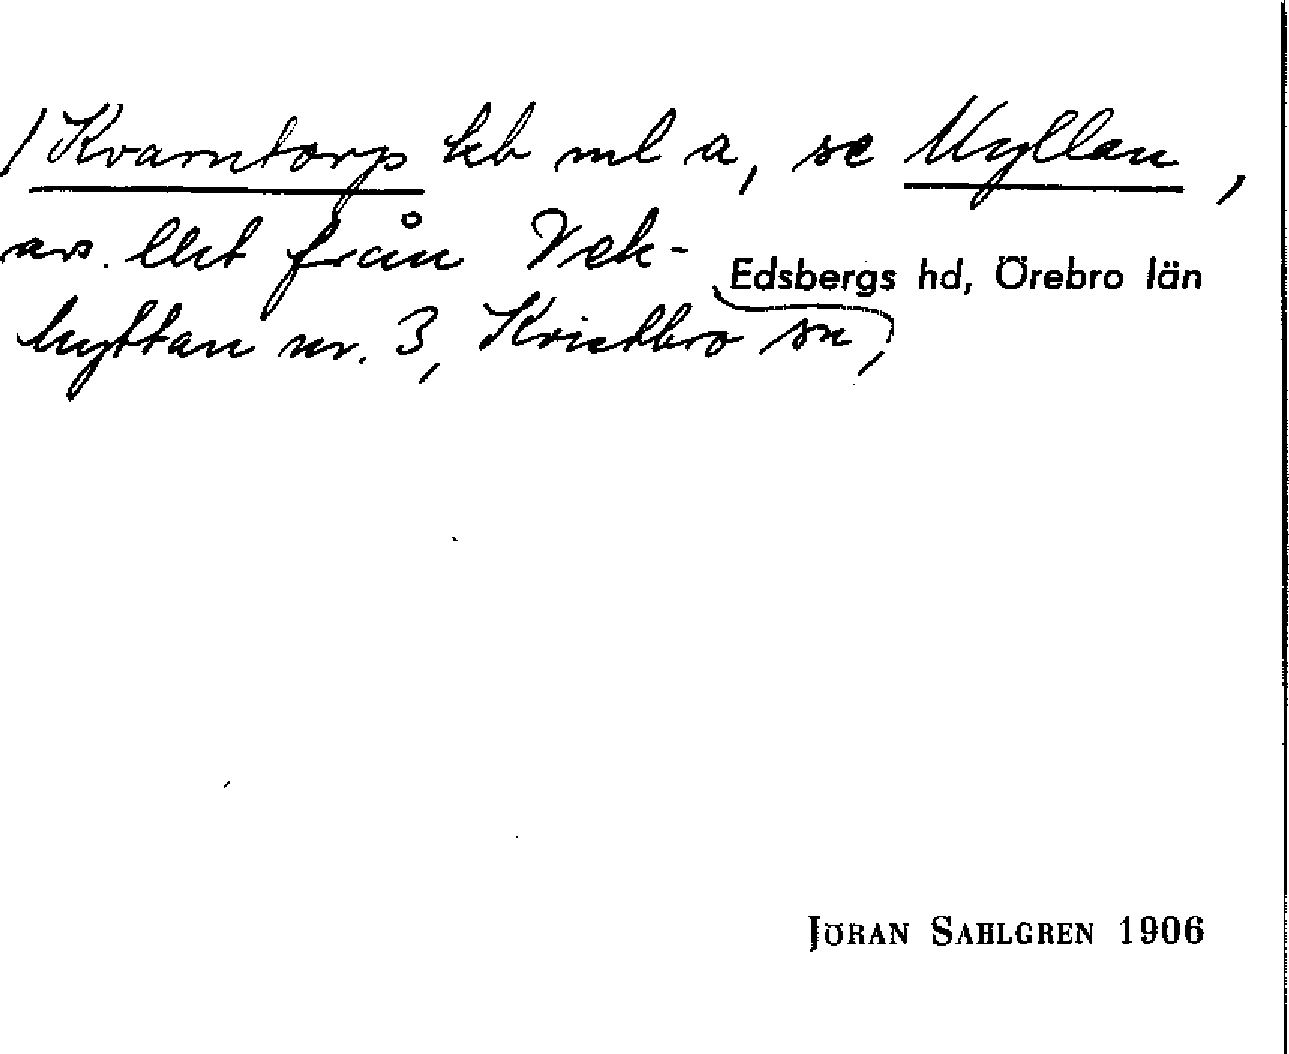 /Kvarntorp kb ml a, se Kyllan,
avs. lht från Vek-
hyttan nr. 3, Kristbro sn,
Edsbergs hd, Örebro län
JÖRAN SAHLGREN 1906